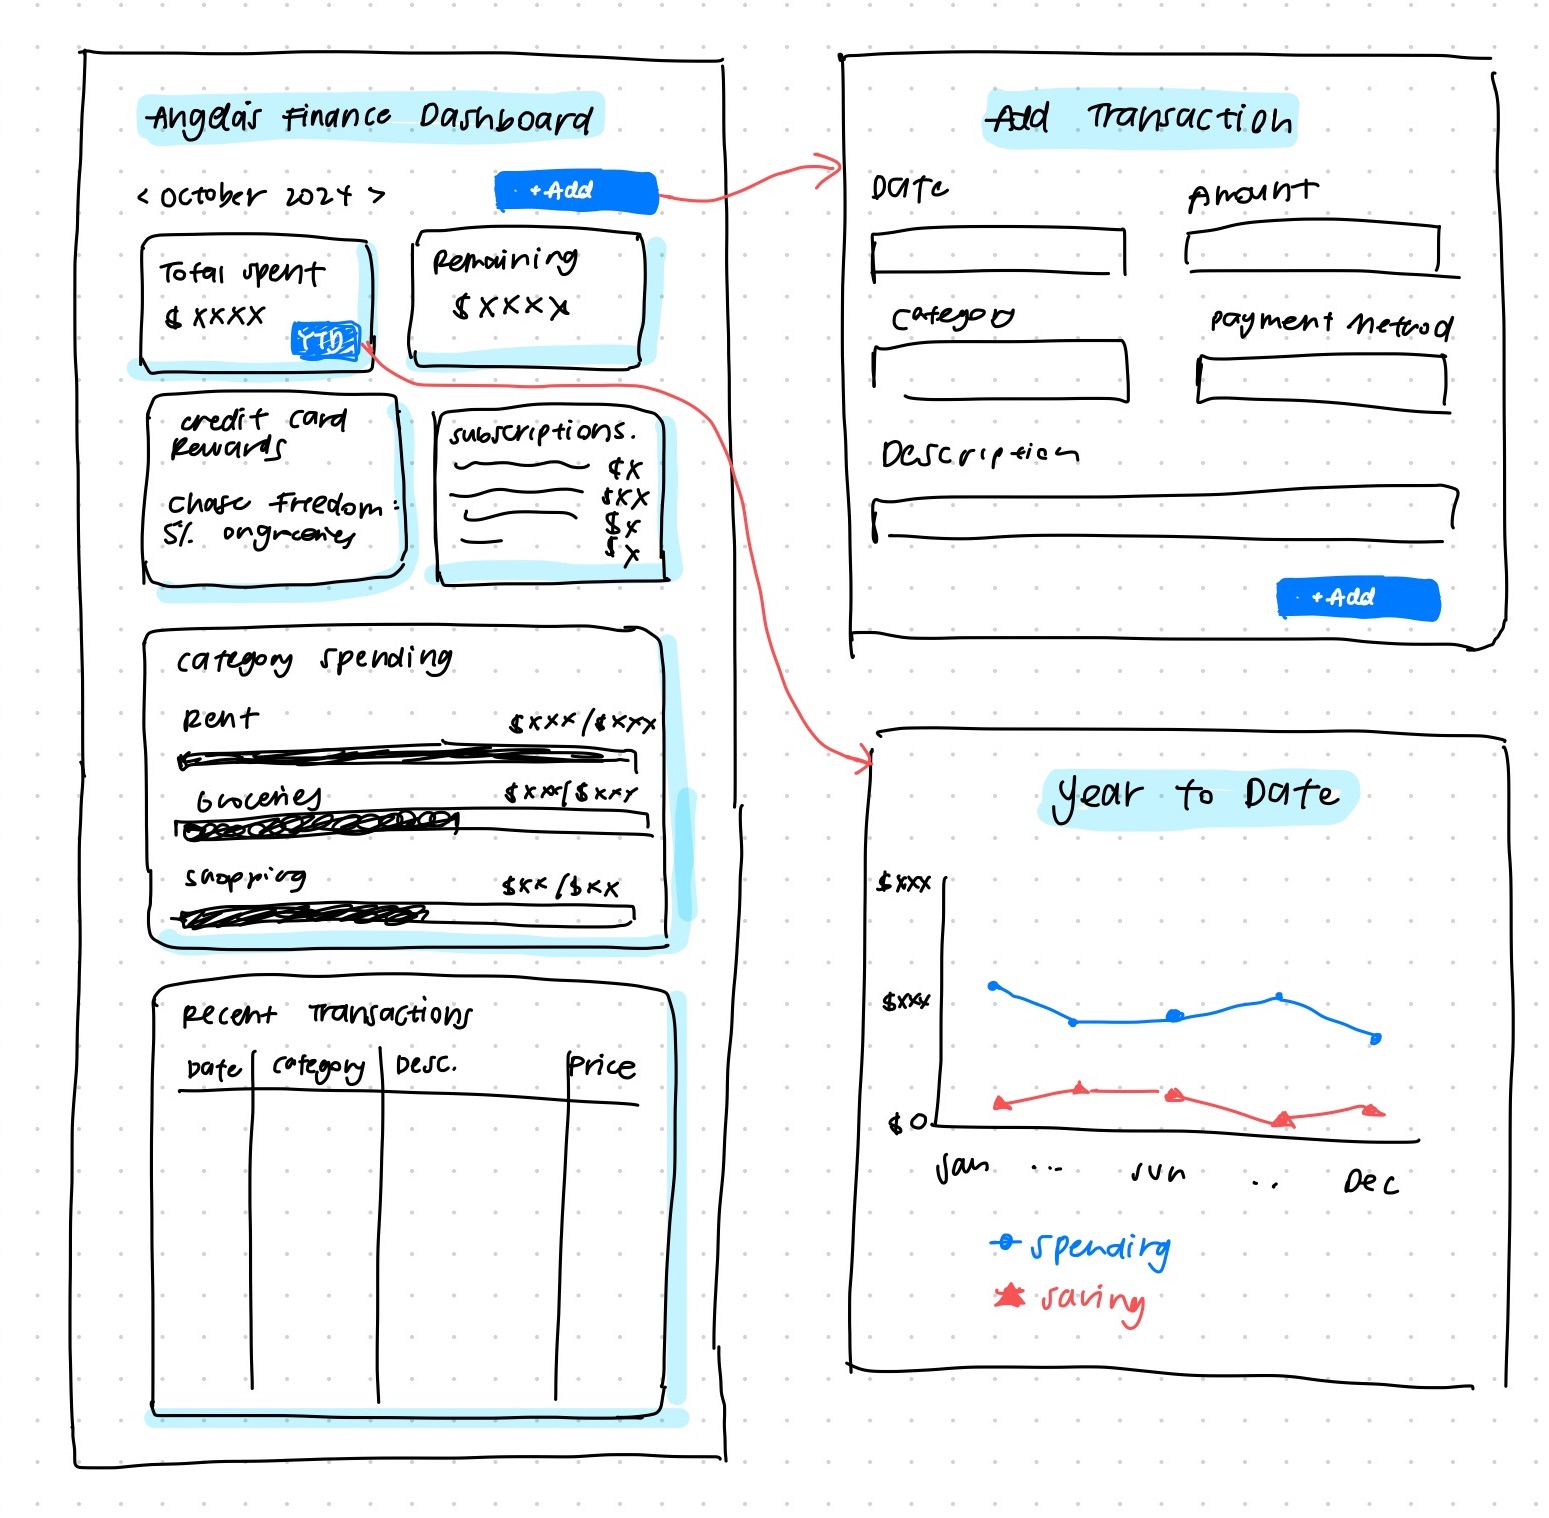 Angela's Finance Dashboard
< October 2024 >
+ Add
Total spent
$ XXXX
YTD
Remaining
$ XXXX
Credit Card
Rewards
Chase Freedom:
5% on groceries
Subscriptions.
$X
$XX
$X
$X
Category Spending
Rent
$XXX/$XXX
Groceries
$XXX/$XXX
Shopping
$XX/$XX
Recent Transactions
Date
Category
Desc.
Price
Add Transaction
Date
Amount
Category
Payment Method
Description
+ Add
Year to Date
$XXX
$XXX
$0
Jan ... Jun .. Dec
Spending
Saving